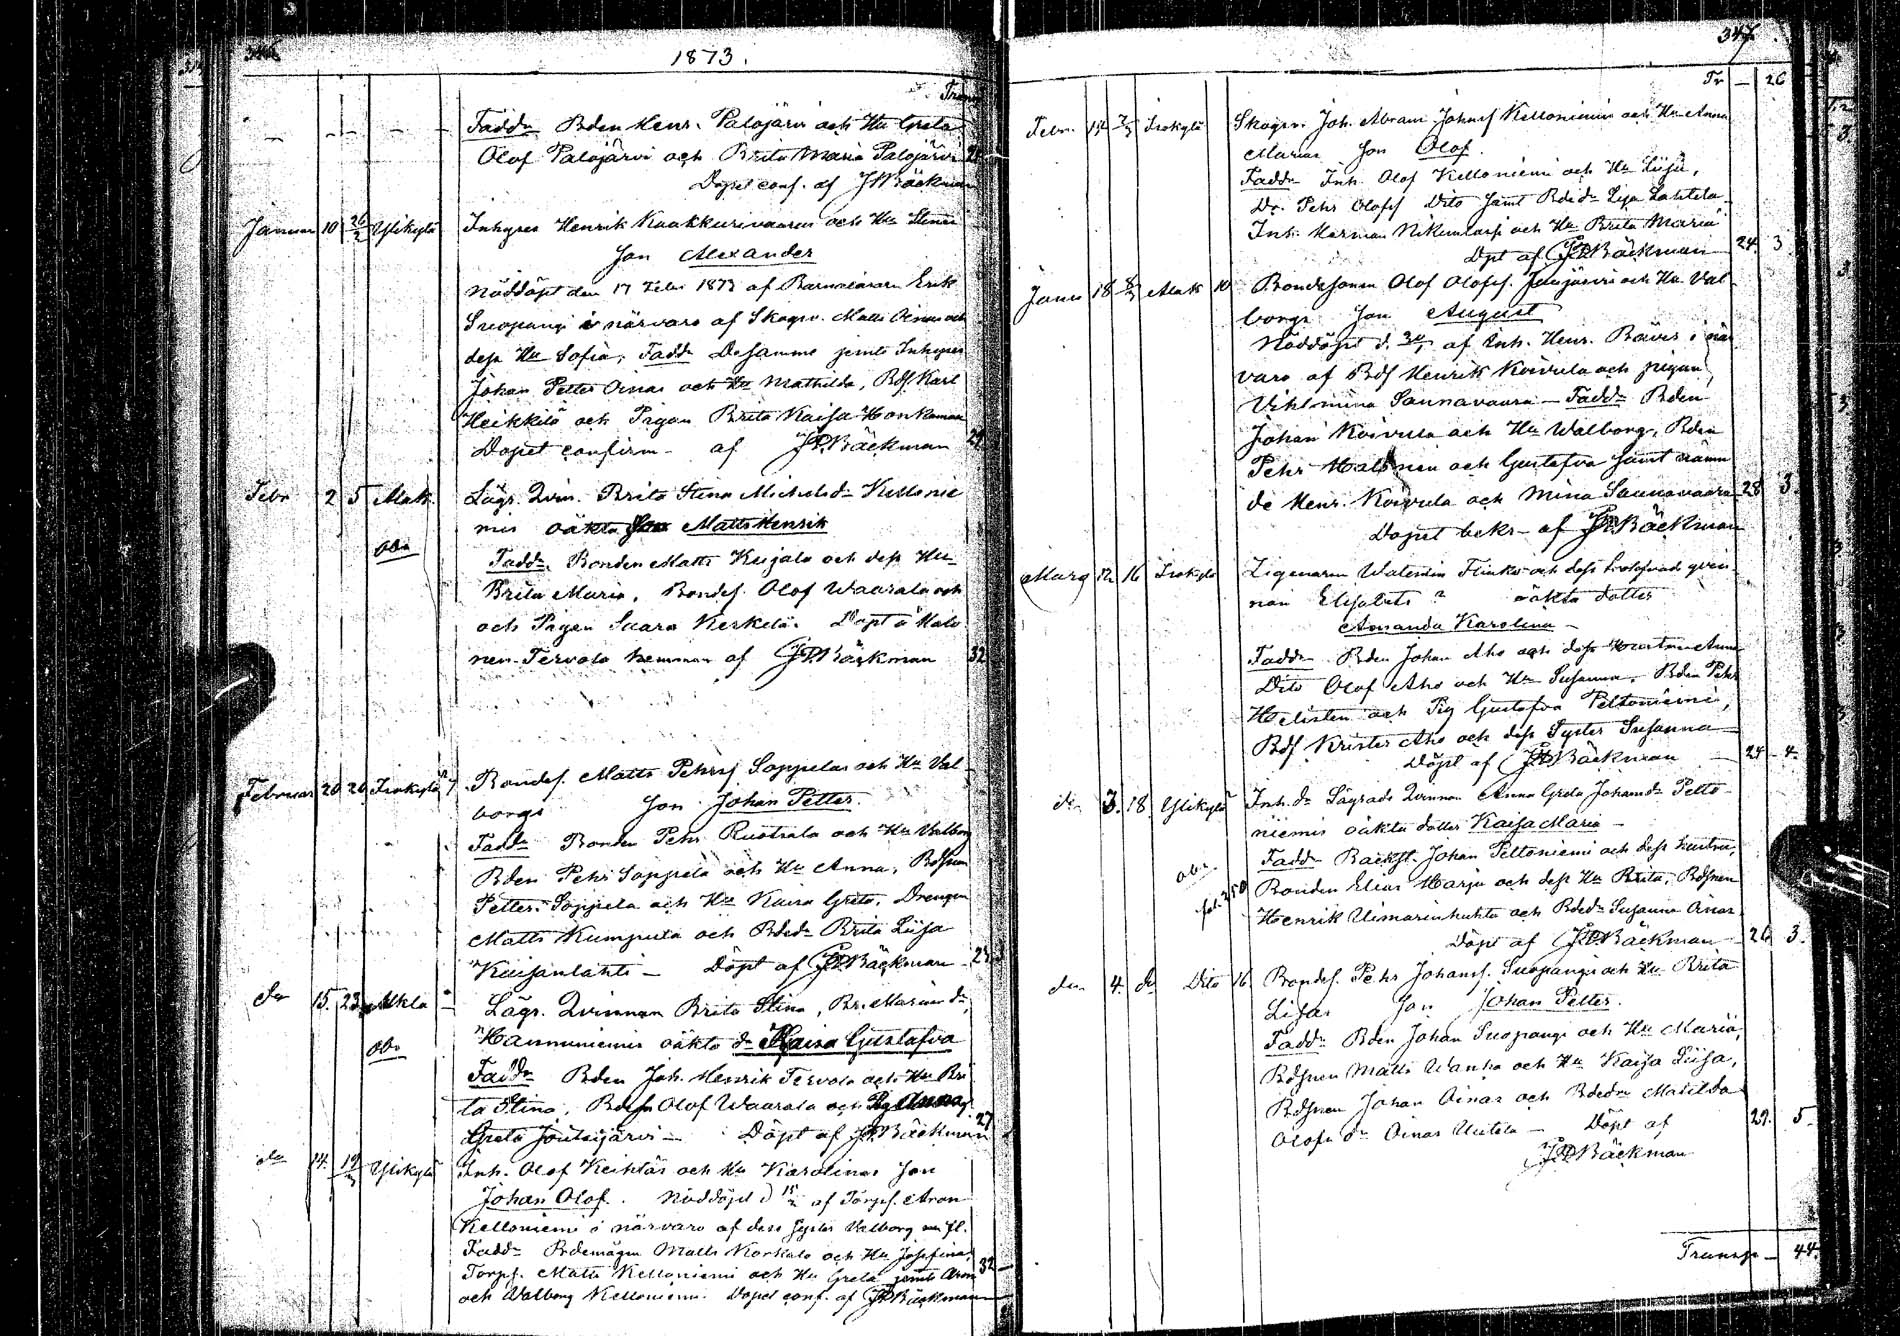 346
1873.
Transp
Faddr Bden Henr. Palojärvi och Hu Greta
Olof Palojärvi och Brita Maria Palojärvi
Dopet conf. af JPBäckman
Januar 10 26/2 Ylikylä Inhyses Henrik Kaakkurivaaras och Hu Stinas
Son Alexander
Nöddöpt den 17 Febr 1873 af Barnalärarn Erik
Suopangi i närvaro af Skogsv. Matts Oinas och
dess Hu Sofia, Faddr Desamme jemte Inhyses
Johan Petter Oinas och Hu Mathilda, Bdf Karl
Heikkilä och Pigan Brita Kaisa Honkamaa
Dopet confirm. af JPBäckman 29
Febr 2 5 Alak. Lägr. Qvin. Brita Stina Michelsdr Kellonie
mis oäkta Son Matts Henrik
obs
Faddr. Bonden Matts Kujala och dess Hu
Brita Maria, Bondes. Olof Waarala och
och Pigan Saara Kerkelä. Döpt å Halo
nen-Tervola hemman af JPBäckman 32
Februar 20 20 Irokylä 7 Bondes. Matts Pehrs Soppelas och Hu Val
borgs Son Johan Petter.
Faddr Bonden Pehr Ruotsala och Hu Valborg
Bden Pehr Soppela och Hu Anna, Bdsnen
Petter Soppela och Hu Kaisa Greta, Drengen
Matts Kumpula och Bdedr Brita Liisa
Kaisanlahti — Döpt af JPBäckman
do 15. 23 Lägr. Qvinnan Brita Stina, Br. Mariæ dr
Hannuniemis oäkta dr Kaisa Gustafva
obs
Faddr Bden Joh. Henrik Tervola och Hu Bri
ta Stina, Bdsn Olof Waarala och Pig Anna
Greta Joutsijärvi — Döpt af JPBäckman 27
do 14. Ylikylä Inh. Olof Keihtäs och Hu Karolinas Son
Johan Olof. Nöddöpt d 15/2 af Torpf. Aron
Kelloniemi i närvaro af dess Syster Valborg m fl.
Faddr Bdemågen Matts Korkalo och Hu Josefina,
Torpf. Matts Kelloniemi och Hu Greta jemte Aron 32
och Walborg Kelloniemi. Dopet conf. af JPBäckman
347
Tr — 26
Febr. Irokylä Skogsv. Joh. Abram Johans Kelloniemis och Hu Anna
Marias Son Olof.
Faddr Inh. Olof Kelloniemi och Hu Liisa,
Dr. Pehr Olofs Dito samt Bdedr Lisa Lahtela
Inh. Herman Nikunlassi och Hu Brita Maria
Dpt af JPBäckman 24. 3
Janu 18 8/3 Alak 10 Bondesonen Olof Olofs. Jaisjärvis och Hu Val
borgs Son August
Nöddöpt d. af Inh. Henr. Bävers i när
varo af Bds Henrik Koivula och pigan
Vihlmina Saunavaara — Faddr Bden
Johan Koivula och Hu Walborg, Bden
Pehr Halonen och Gustafva samt nämn
de Henr. Koivula och Mina Saunavaara 28 3.
Dopet bekr. af JPBäckman
Mars 12 16 Irokylä Zigenarn Walentin Flinks och dess trolofvade qvin
nan Elisabets ? oäkta dotter
Amanda Karolina —
Faddr Bden Johan Aho och dess Hustru Anna
Dito Olof Aho och Hu Susanna. Bden Pehr
Helisten och Pig Gustafva Peltoniemi,
Bdf Krister Aho och dess Syster Susanna
Döpt af JPBäckman — 24 - 4.
do 3. 18 Ylikylä Inh. dr Lägrade Qvinnan Anna Greta Johansdr Pelto
niemis oäkta dotter Kaisa Maria —
obs.
fol. 350
Faddr Backst. Johan Peltoniemi och dess hustru,
Bonden Elias Harju och dess Hu Brita, Bdsnen
Henrik Uimarinhuhta och Bdedr Susanna Oinas
Döpt af JPBäckman — 26 3.
do 4. do Dito 16 Bondes. Pehr Johans. Suopangis och Hu Brita
Lisas Son Johan Petter.
Faddr Bden Johan Suopangi och Hu Maria,
Bdsnen Matts Wanha och Hu Kaisa Liisa,
Bdsnen Johan Oinas och Bdedr Matilda
Olofs dr Oinas Uutela — Döpt af 29. 5.
JPBäckman
Transp — 44.